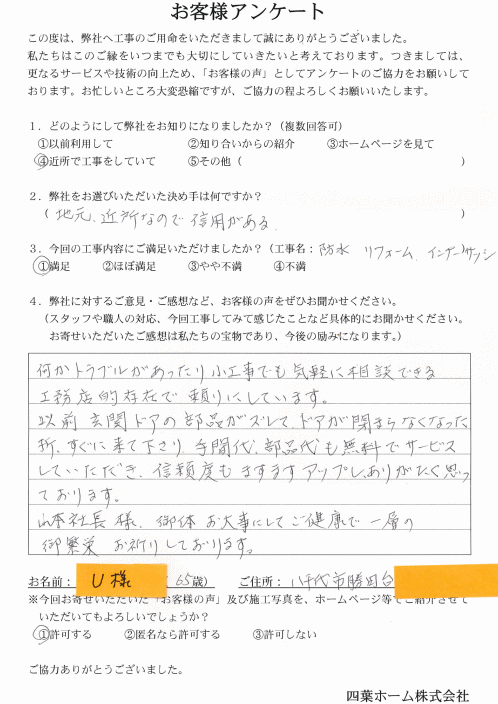 お客様アンケート
この度は、弊社へ工事のご用命をいただきまして誠にありがとうございました。
私たちはこのご縁をいつまでも大切にしていきたいと考えております。つきましては、
更なるサービスや技術の向上ため、「お客様の声」としてアンケートのご協力をお願いして
おります。お忙しいところ大変恐縮ですが、ご協力の程よろしくお願いいたします。
１．どのようにして弊社をお知りになりましたか？（複数回答可）
①以前利用して ②知り合いからの紹介 ③ホームページを見て
④近所で工事をしていて ⑤その他（ ）
２．弊社をお選びいただいた決め手は何ですか？
（地元、近所なので信用がある。）
３．今回の工事内容にご満足いただけましたか？（工事名：防水 リフォーム、インナーサッシ
①満足 ②ほぼ満足 ③やや不満 ④不満
４．弊社に対するご意見・ご感想など、お客様の声をぜひお聞かせください。
（スタッフや職人の対応、今回工事してみて感じたことなど具体的にお聞かせください。
お寄せいただいたご感想は私たちの宝物であり、今後の励みになります。）
何かトラブルがあったり小工事でも気軽に相談できる
工務店的存在で頼りにしています。
以前玄関ドアの部品がズレて、ドアが閉まらなくなった
折、すぐに来て下さり手間代、部品代も無料でサービス
していただき、信頼度もますますアップし、ありがたく思っ
ております。
山本社長様、御体お大事にしてご健康で一層の
御繁栄お祈りしております。
お名前： U様 （65歳） ご住所：八千代市勝田台
※今回お寄せいただいた「お客様の声」及び施工写真を、ホームページ等でご紹介させて
いただいてもよろしいでしょうか？
①許可する ②匿名なら許可する ③許可しない
ご協力ありがとうございました。
四葉ホーム株式会社